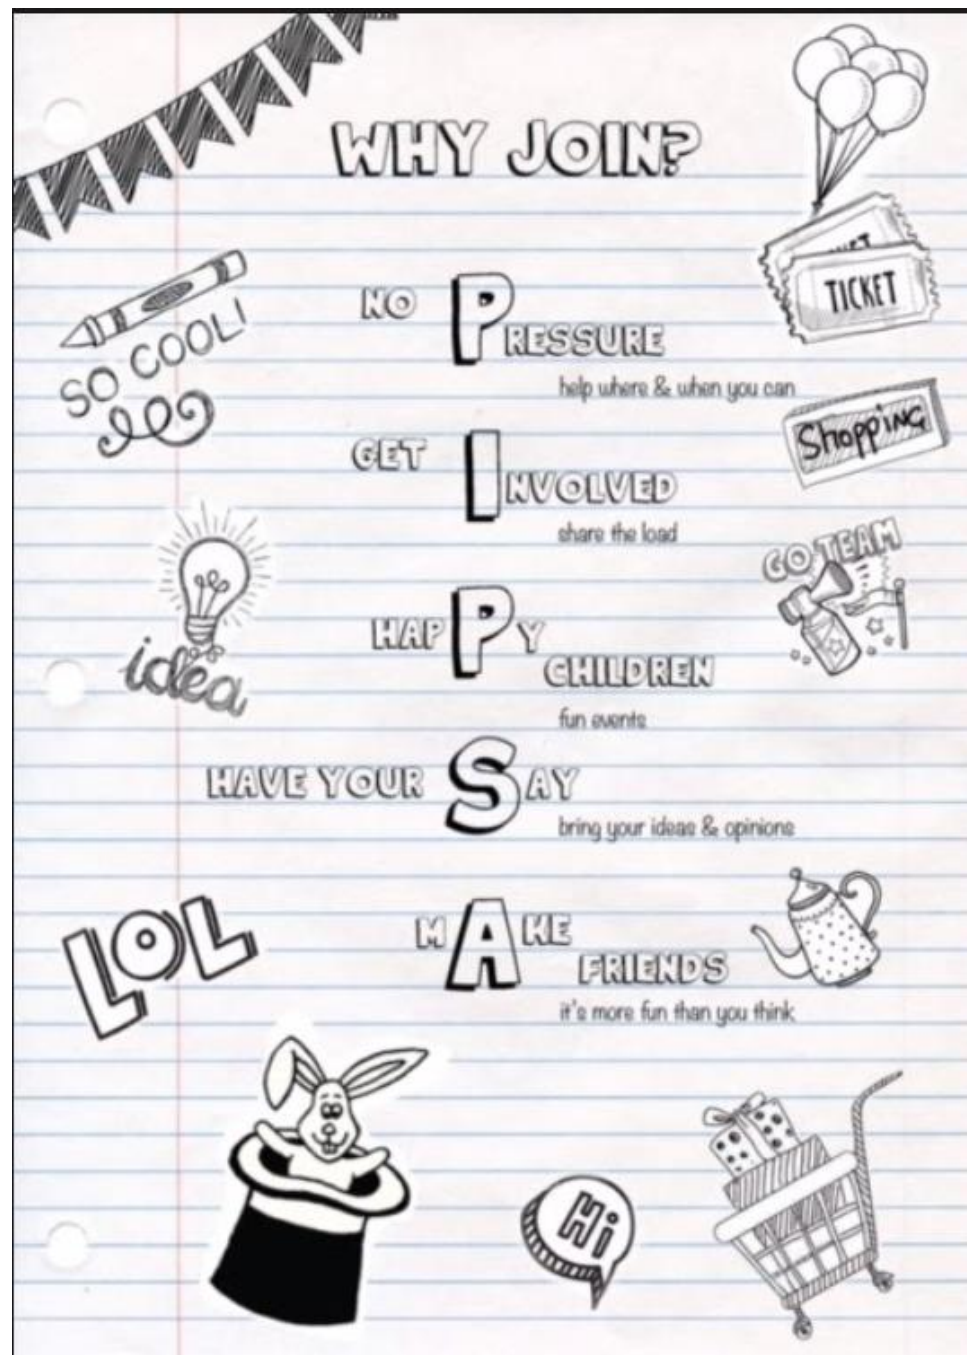 WHY JOIN?
TICKET
NO PRESSURE
SO COOL!
help where & when you can
Shopping
GET INVOLVED
share the load
GO TEAM
HAPPY
CHILDREN
idea
fun events
HAVE YOUR SAY
bring your ideas & opinions
LOL
MAKE
FRIENDS
it's more fun than you think
Hi